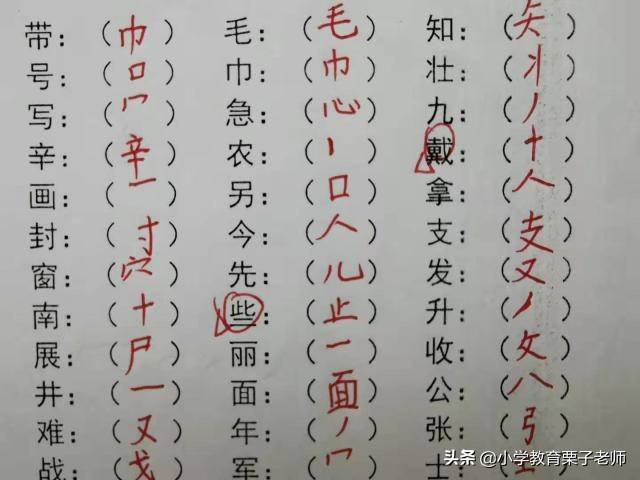 带：（巾） 毛：（毛） 知：（矢）
号：（口） 巾：（巾） 壮：（丬）
写：（冖） 急：（心） 九：（丿）
辛：（辛） 农：（丨） 戴：（十）
画：（一） 另：（口） 拿：（人）
封：（寸） 今：（人） 支：（支）
窗：（穴） 先：（儿） 发：（又）
南：（十） 些：（止） 升：（丿）
展：（尸） 丽：（一） 收：（攵）
井：（一） 面：（面） 公：（八）
难：（又） 年：（丿） 张：（弓）
战：（戈） 军：（冖） 士：（
头条 @小学教育栗子老师